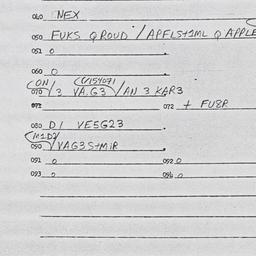 040 NEX
050 FUKS QROUD / APFLS+1ML Q APPLE
051 0
060 0
(ON (V154071
070 / 3 VA.G3 / AN 3 KAR3
072 + FU8R
080 D1 VE5G23
(M1D2/
090 / VAG3S+MiR
091 0 092 0
093 0 096 0